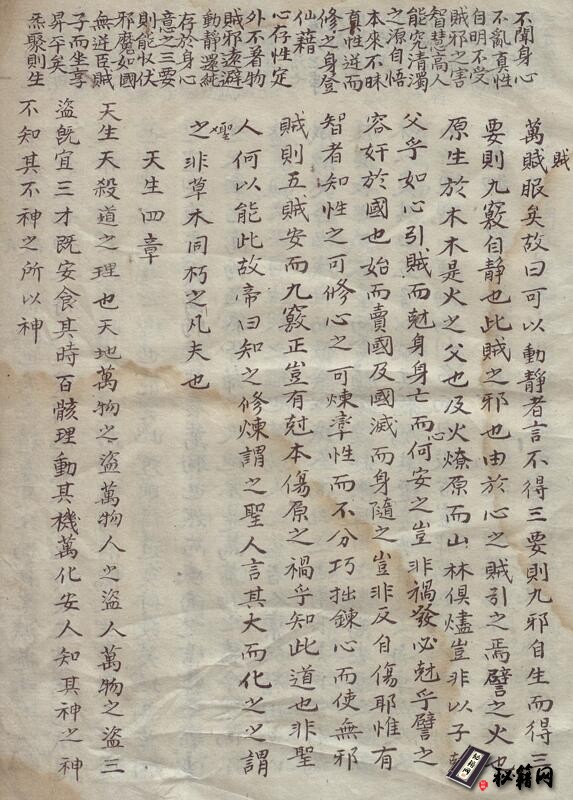 不聞身心
不亂真性
自明不受
賊邪之害
智慧高人
能究清濁
之源自悟
本來不昧
真性迷而
修之身登
仙籍
心存性定
外不著物
賊邪遠避
動靜還純
存於身心
意之三要
則能收伏
邪魔如國
無逆臣賊
子而坐享
昇平矣
炁聚則生
賊
萬賊服矣故曰可以動靜者言不得三要則九邪自生而得三
要則九竅自靜也此賊之邪也由於心之賊引之焉譬之火也
原生於木木是火之父也及火燎原而山林俱燼豈非以子
父乎如心引賊而尅身身亡而何安之豈非禍發必尅乎譬之
心
容奸於國也始而賣國及國滅而身隨之豈非反自傷耶惟有
智者知性之可修心之可煉率性而不分巧拙鍊心而使無邪
賊則五賊安而九竅正豈有尅本傷原之禍乎知此道也非聖
人何以能此故帝曰知之修煉謂之聖人言其大而化之之謂
聖
之非草木同朽之凡夫也
天生四章
天生天殺道之理也天地萬物之盜萬物人之盜人萬物之盜三
盜既宜三才既安食其時百骸理動其機萬化安人知其神之神
不知其不神之所以神
秘籍网
秘籍网